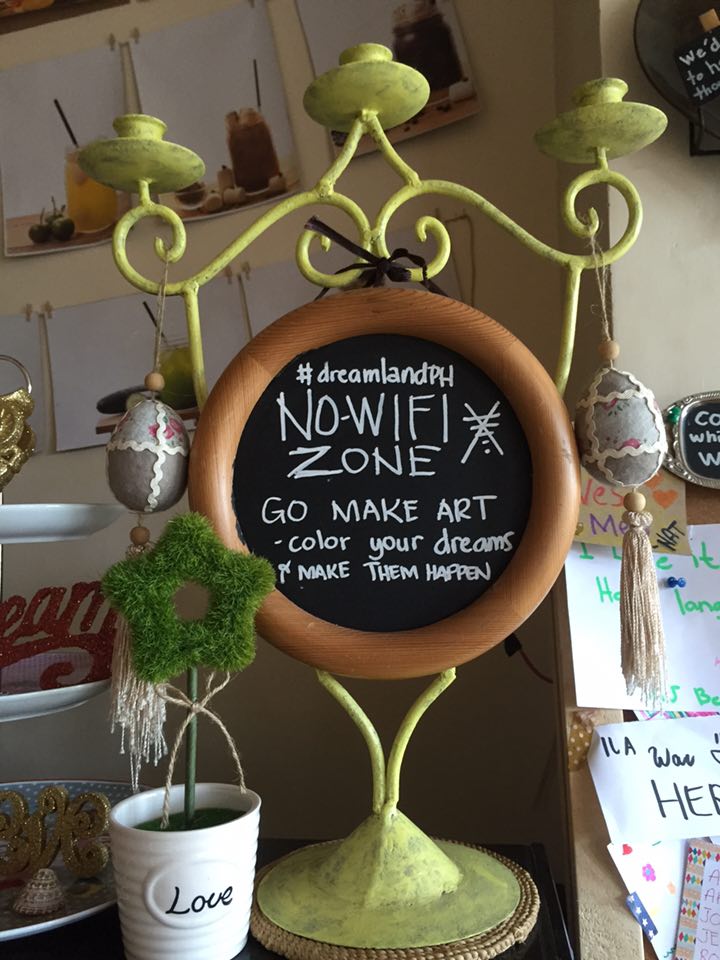 #dreamlandPH
NO-WIFI
ZONE
GO MAKE ART
- color your dreams
& MAKE THEM HAPPEN
Love
We'd
to he
ICA was
HER